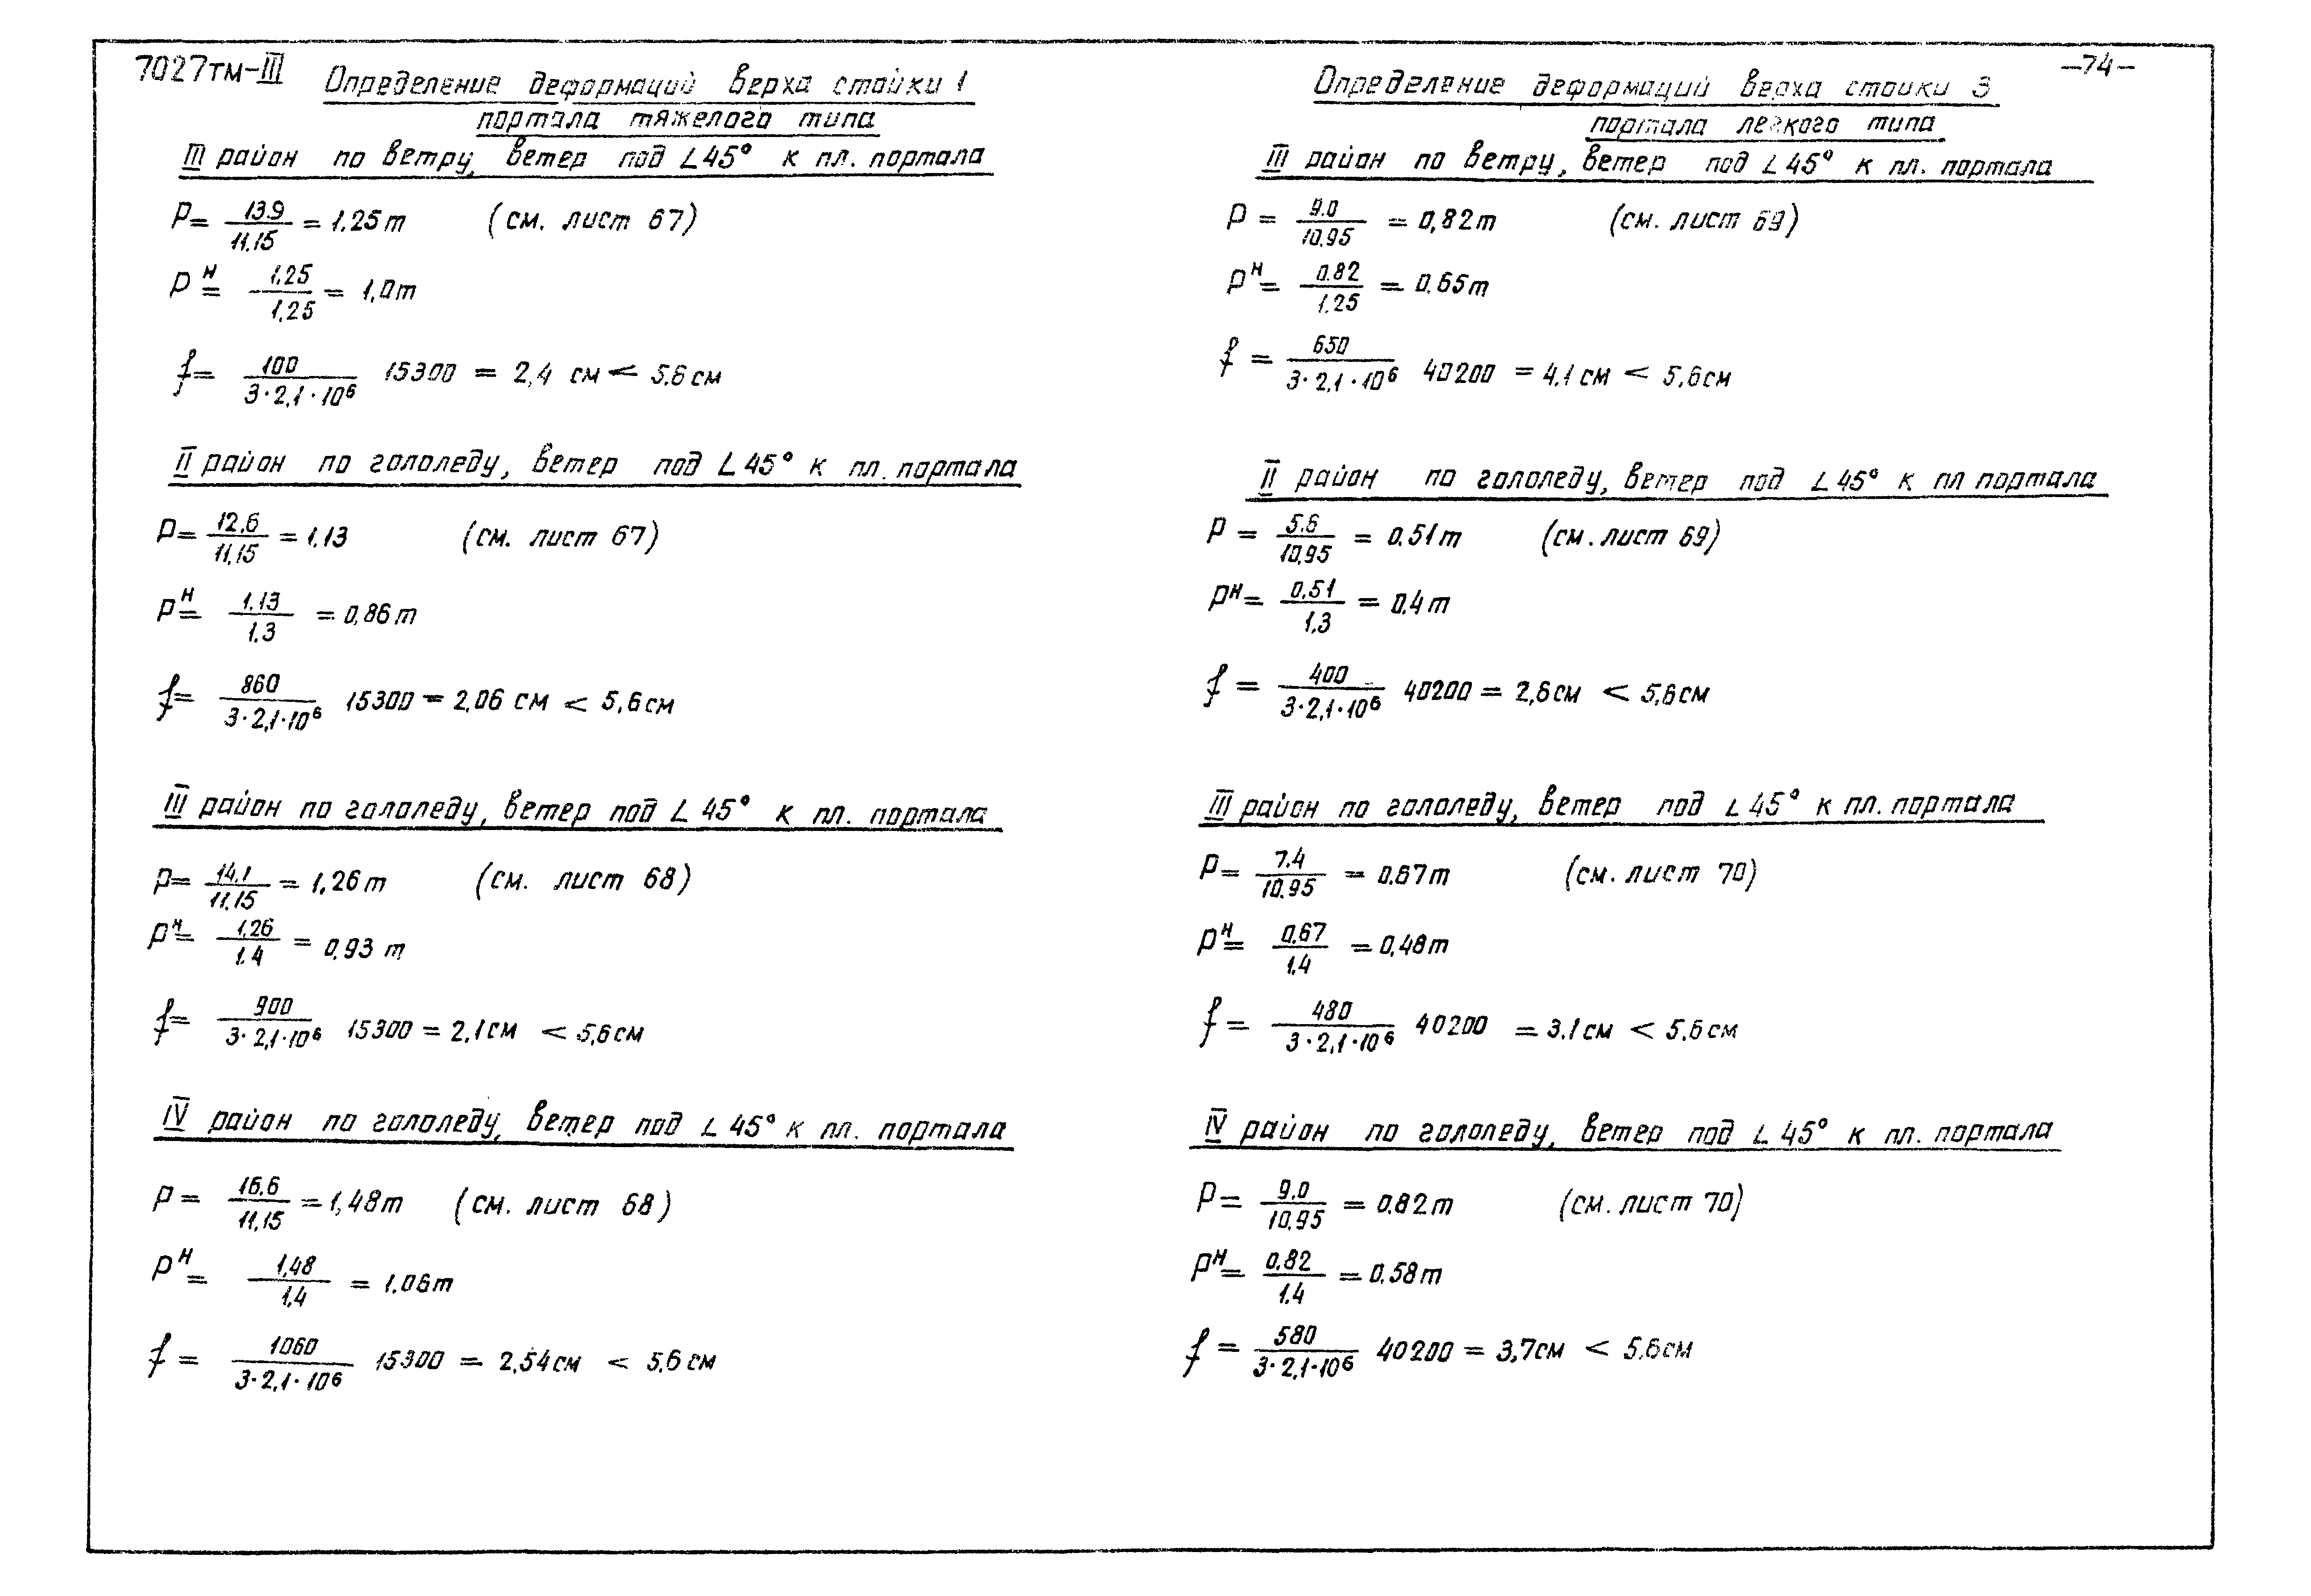 7027тм-III
Определение деформаций верха стойки 1
портала тяжелого типа
III район по ветру, ветер под ∠45° к пл. портала
P= 13.9/11.15 = 1.25т (см. лист 67)
Pᴴ= 1.25/1.25 = 1,0т
f= 100/3·2,1·10⁶ 15300 = 2,4 см < 5.6см
II район по гололеду, ветер под ∠45° к пл. портала
P= 12.6/11,15 = 1.13 (см. лист 67)
Pᴴ= 1.13/1.3 = 0,86т
f= 860/3·2,1·10⁶ 15300 = 2,06 см < 5,6см
III район по гололеду, ветер под ∠45° к пл. портала
P= 14.1/11.15 = 1,26т (см. лист 68)
Pᴴ= 1,26/1.4 = 0,93 т
f= 900/3·2,1·10⁶ 15300 = 2,1см < 5,6см
IV район по гололеду, ветер под ∠45° к пл. портала
P= 16.6/11,15 = 1,48т (см. лист 68)
Pᴴ= 1,48/1,4 = 1.06т
f= 1060/3·2,1·10⁶ 15300 = 2,54см < 5,6см
–74–
Определение деформаций верха стойки 3
портала легкого типа
III район по ветру, ветер под ∠45° к пл. портала
P= 9.0/10.95 = 0,82т (см. лист 69)
Pᴴ= 0.82/1.25 = 0.65т
f= 650/3·2,1·10⁶ 40200 = 4,1см < 5,6см
II район по гололеду, ветер под ∠45° к пл портала
P= 5.6/10,95 = 0.51т (см. лист 69)
Pᴴ= 0,51/1,3 = 0.4т
f= 400/3·2,1·10⁶ 40200 = 2,6см < 5,6см
III район по гололеду, ветер под ∠45° к пл. портала
P= 7.4/10.95 = 0.67т (см. лист 70)
Pᴴ= 0,67/1,4 = 0,48т
f= 480/3·2,1·10⁶ 40200 = 3.1см < 5.6см
IV район по гололеду, ветер под ∠45° к пл. портала
P= 9.0/10.95 = 0.82т (см. лист 70)
Pᴴ= 0,82/1.4 = 0,58т
f= 580/3·2,1·10⁶ 40200 = 3,7см < 5,6см